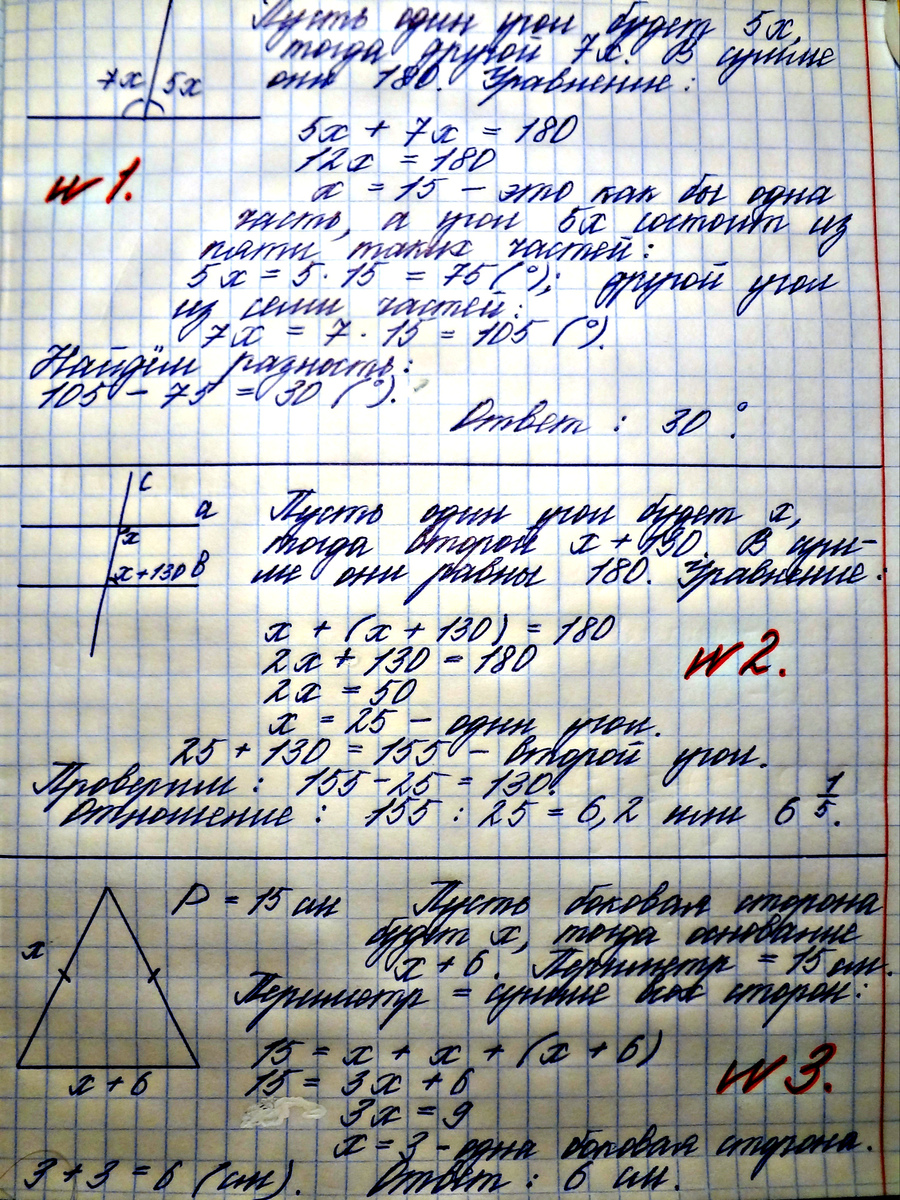 Пусть один угол будет 5х,
тогда другой 7х. В сумме
они 180. Уравнение:
7х 5х
5х + 7х = 180
12х = 180
№1.
х = 15 – это как бы одна
часть, а угол 5х состоит из
пяти таких частей:
5х = 5 · 15 = 75 (°); другой угол
из семи частей:
7х = 7 · 15 = 105 (°).
Найдём разность:
105 – 75 = 30 (°).
Ответ : 30°.
с
а
х
х+130 в
Пусть один угол будет х,
тогда второй х + 130. В сум-
ме они равны 180. Уравнение:
х + (х + 130) = 180
2х + 130 = 180
№2.
2х = 50
х = 25 – один угол.
25 + 130 = 155 – второй угол.
Проверим : 155 – 25 = 130.
Отношение : 155 : 25 = 6,2 или 6 1/5.
Р = 15 см Пусть боковая сторона
х
будет х, тогда основание
х + 6. Периметр = 15 см.
Периметр = сумме всех сторон:
15 = х + х + (х + 6)
х + 6
15 = 3х + 6
№3.
3х = 9
х = 3 – одна боковая сторона.
3 + 3 = 6 (см). Ответ : 6 см.